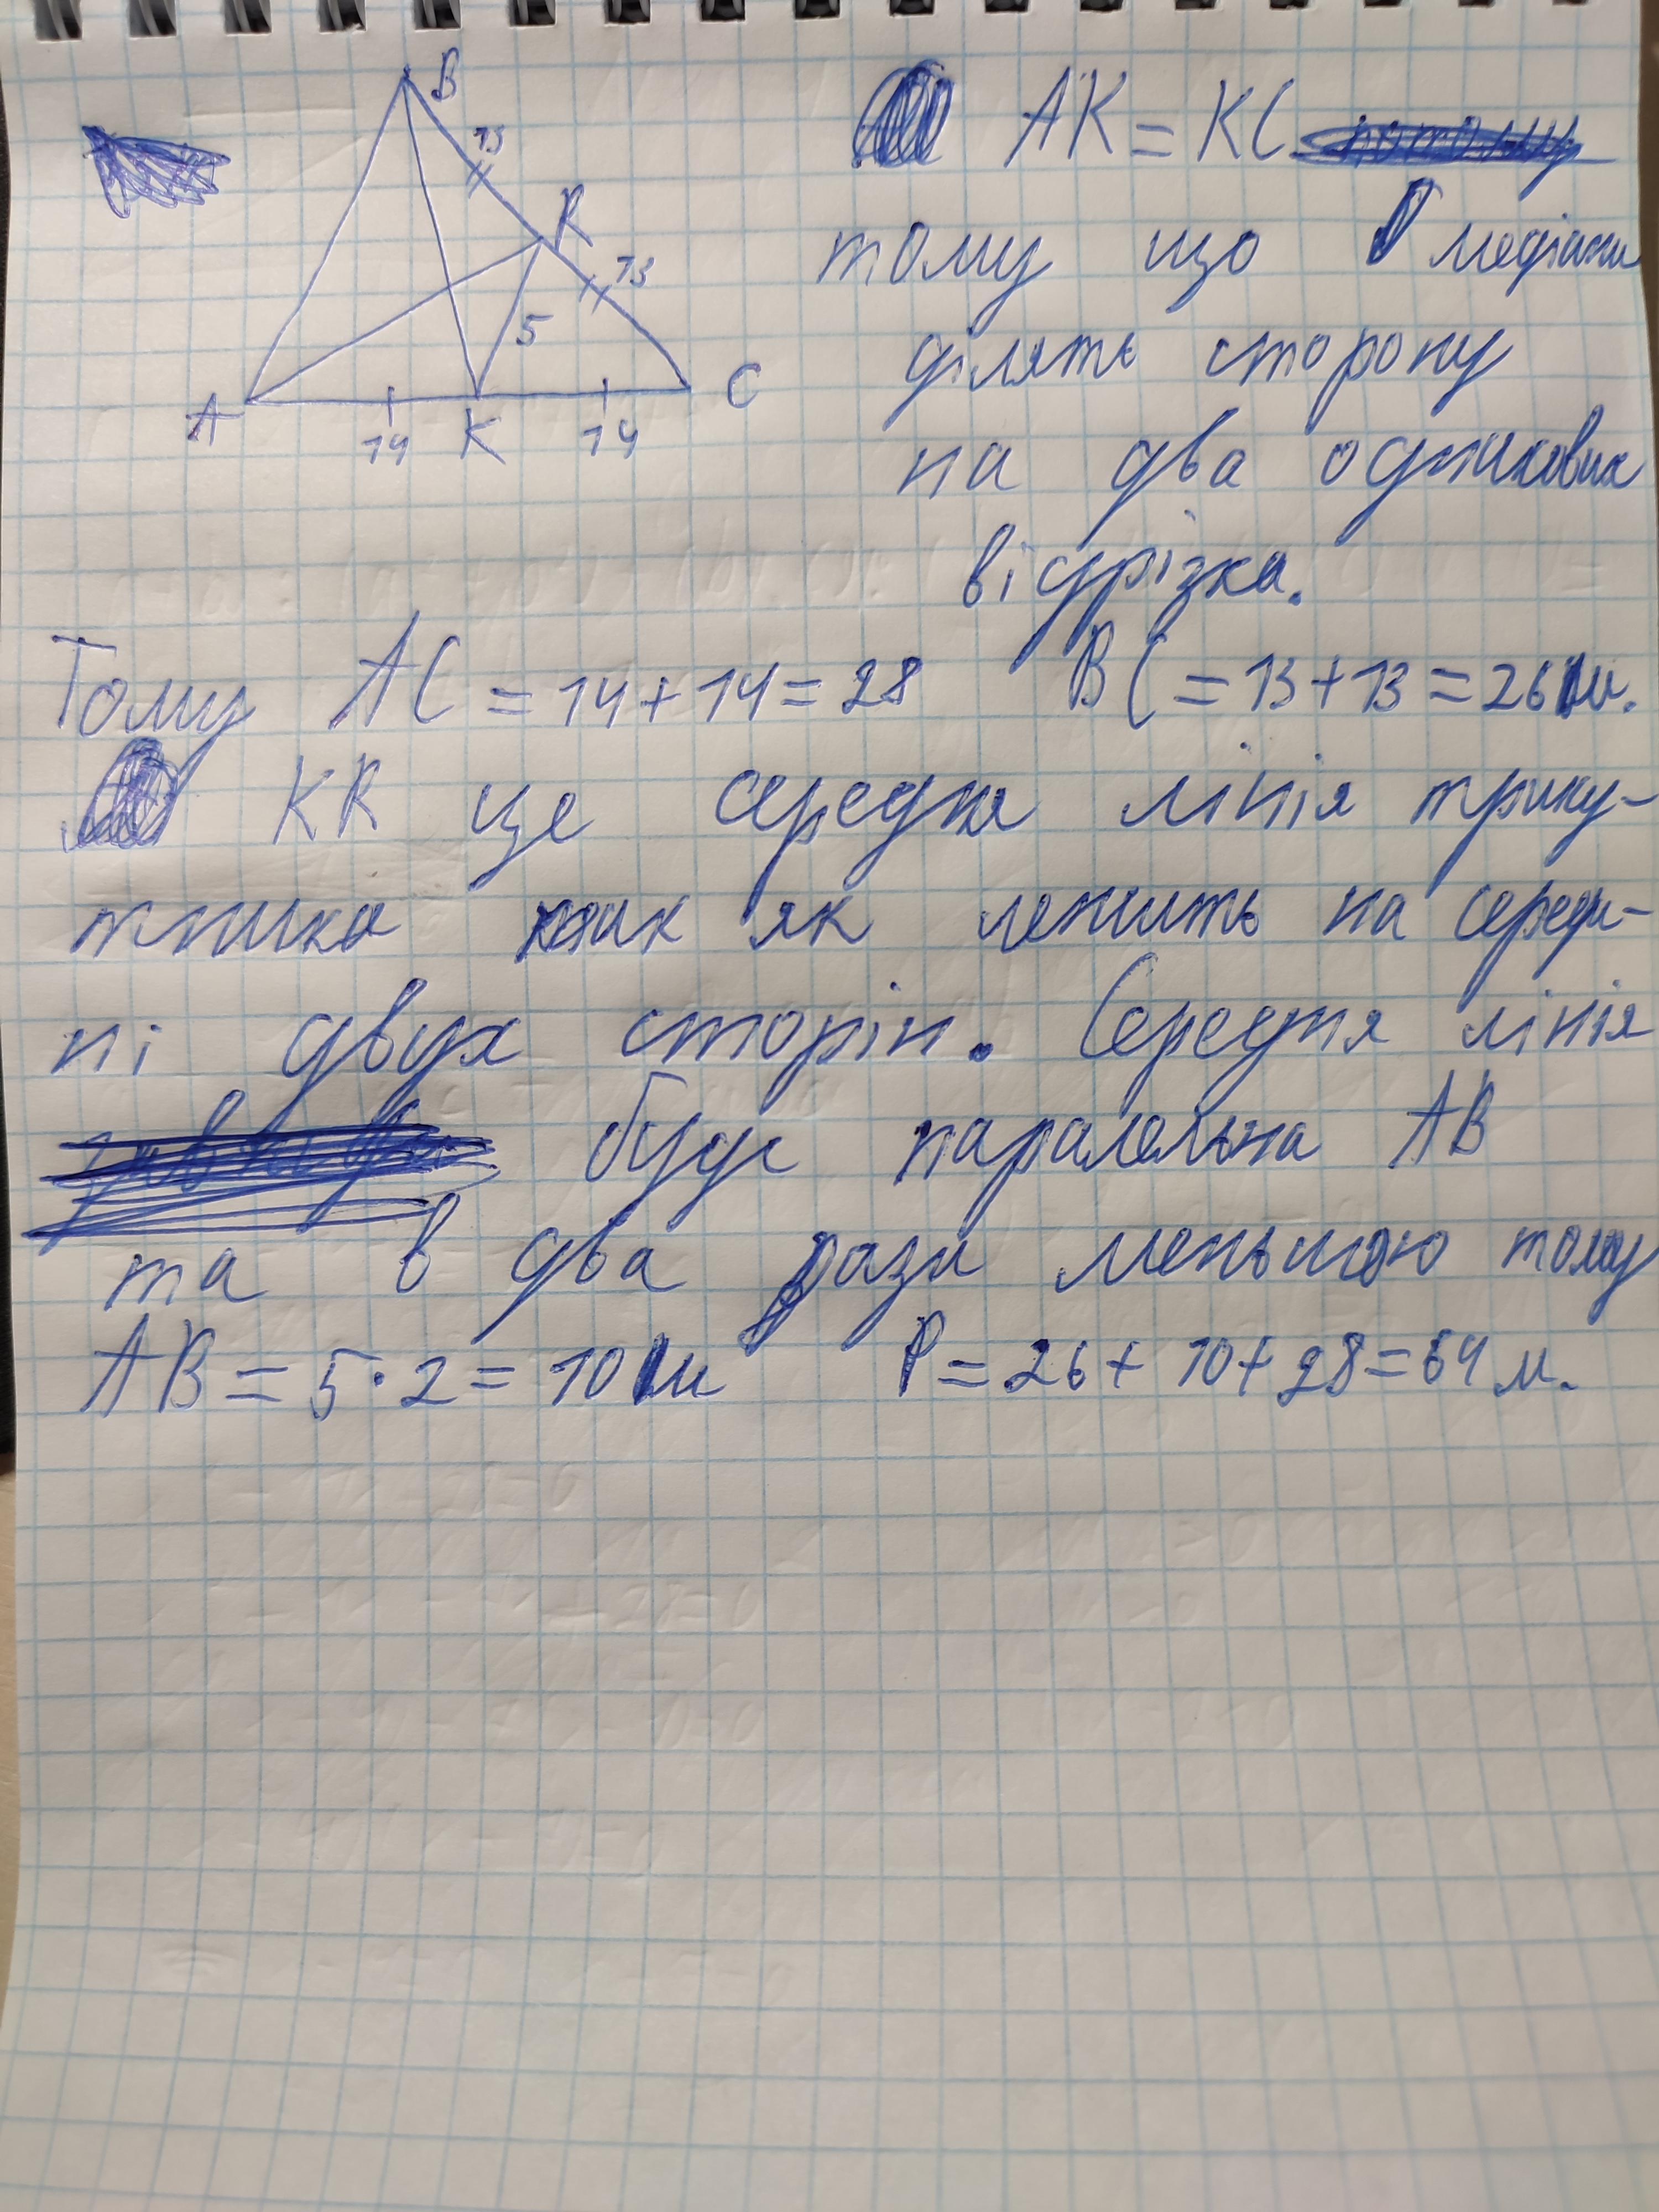 B
13
R
13
5
A
14
K
14
C
AK = KC
тому що медіани
ділять сторону
на два однакових
відрізка.
Тому AC = 14 + 14 = 28 BC = 13 + 13 = 26 м.
KR це середня лінія трику-
тника так як лежить на середи-
ні двух сторін. Середня лінія
буде паралельна AB
та в два рази меньшою тому
AB = 5 · 2 = 10 м P = 26 + 10 + 28 = 64 м.